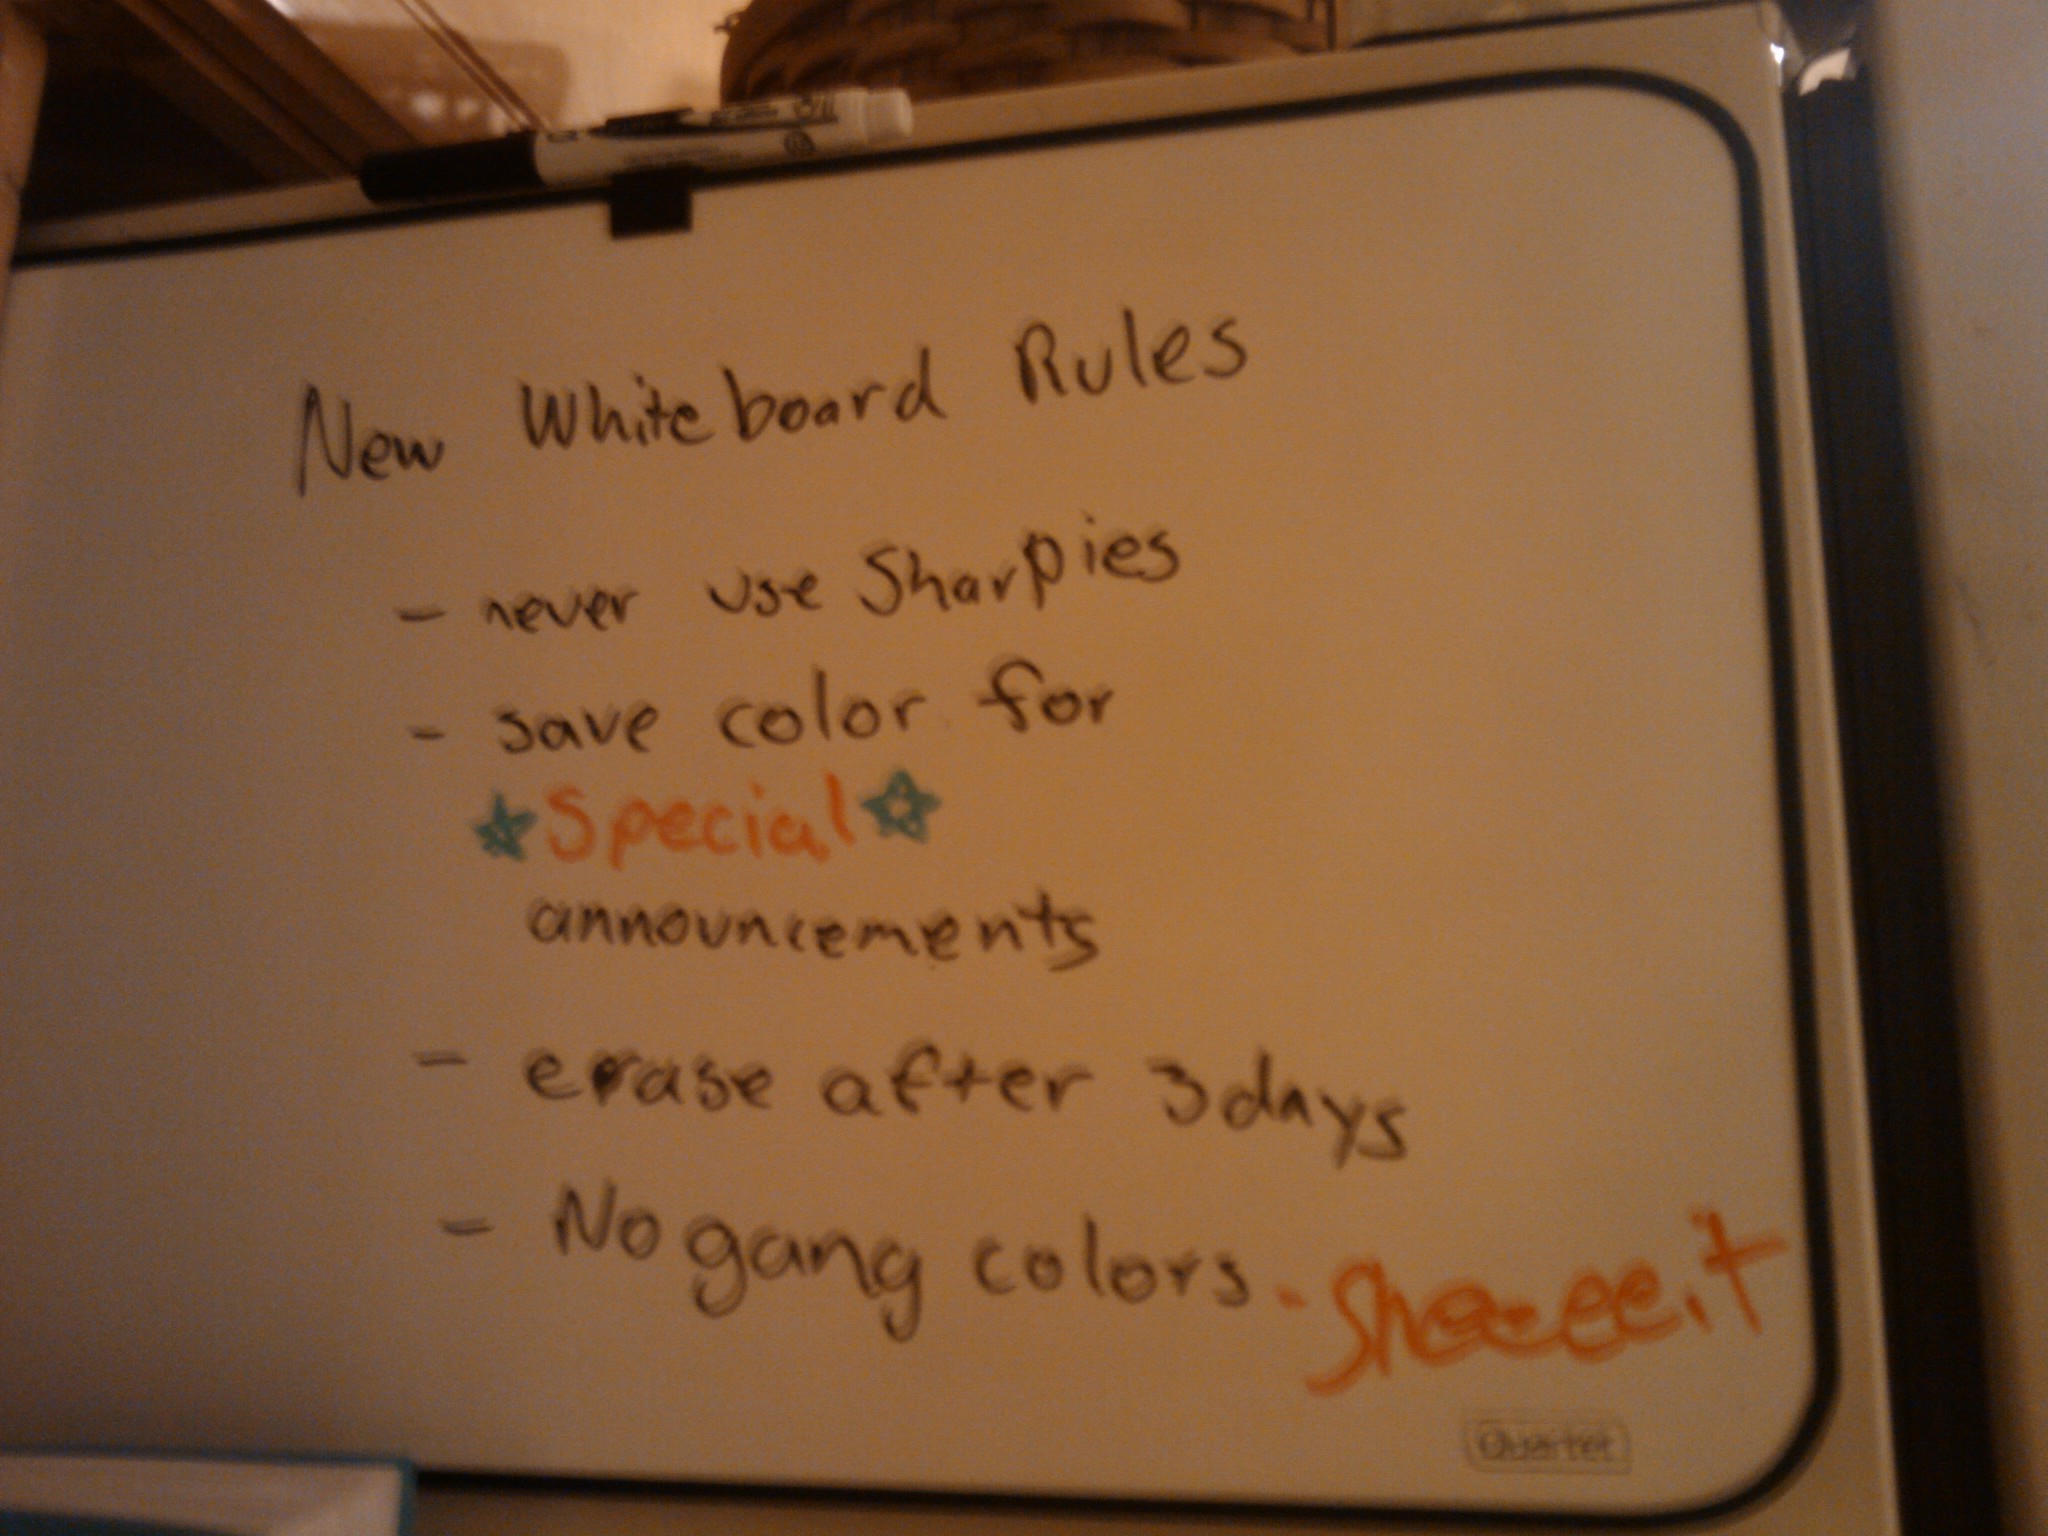 New Whiteboard Rules
- never use Sharpies
- save color for
☆Special☆
announcements
- erase after 3 days
- No gang colors. - Sheeeeit
Quartet